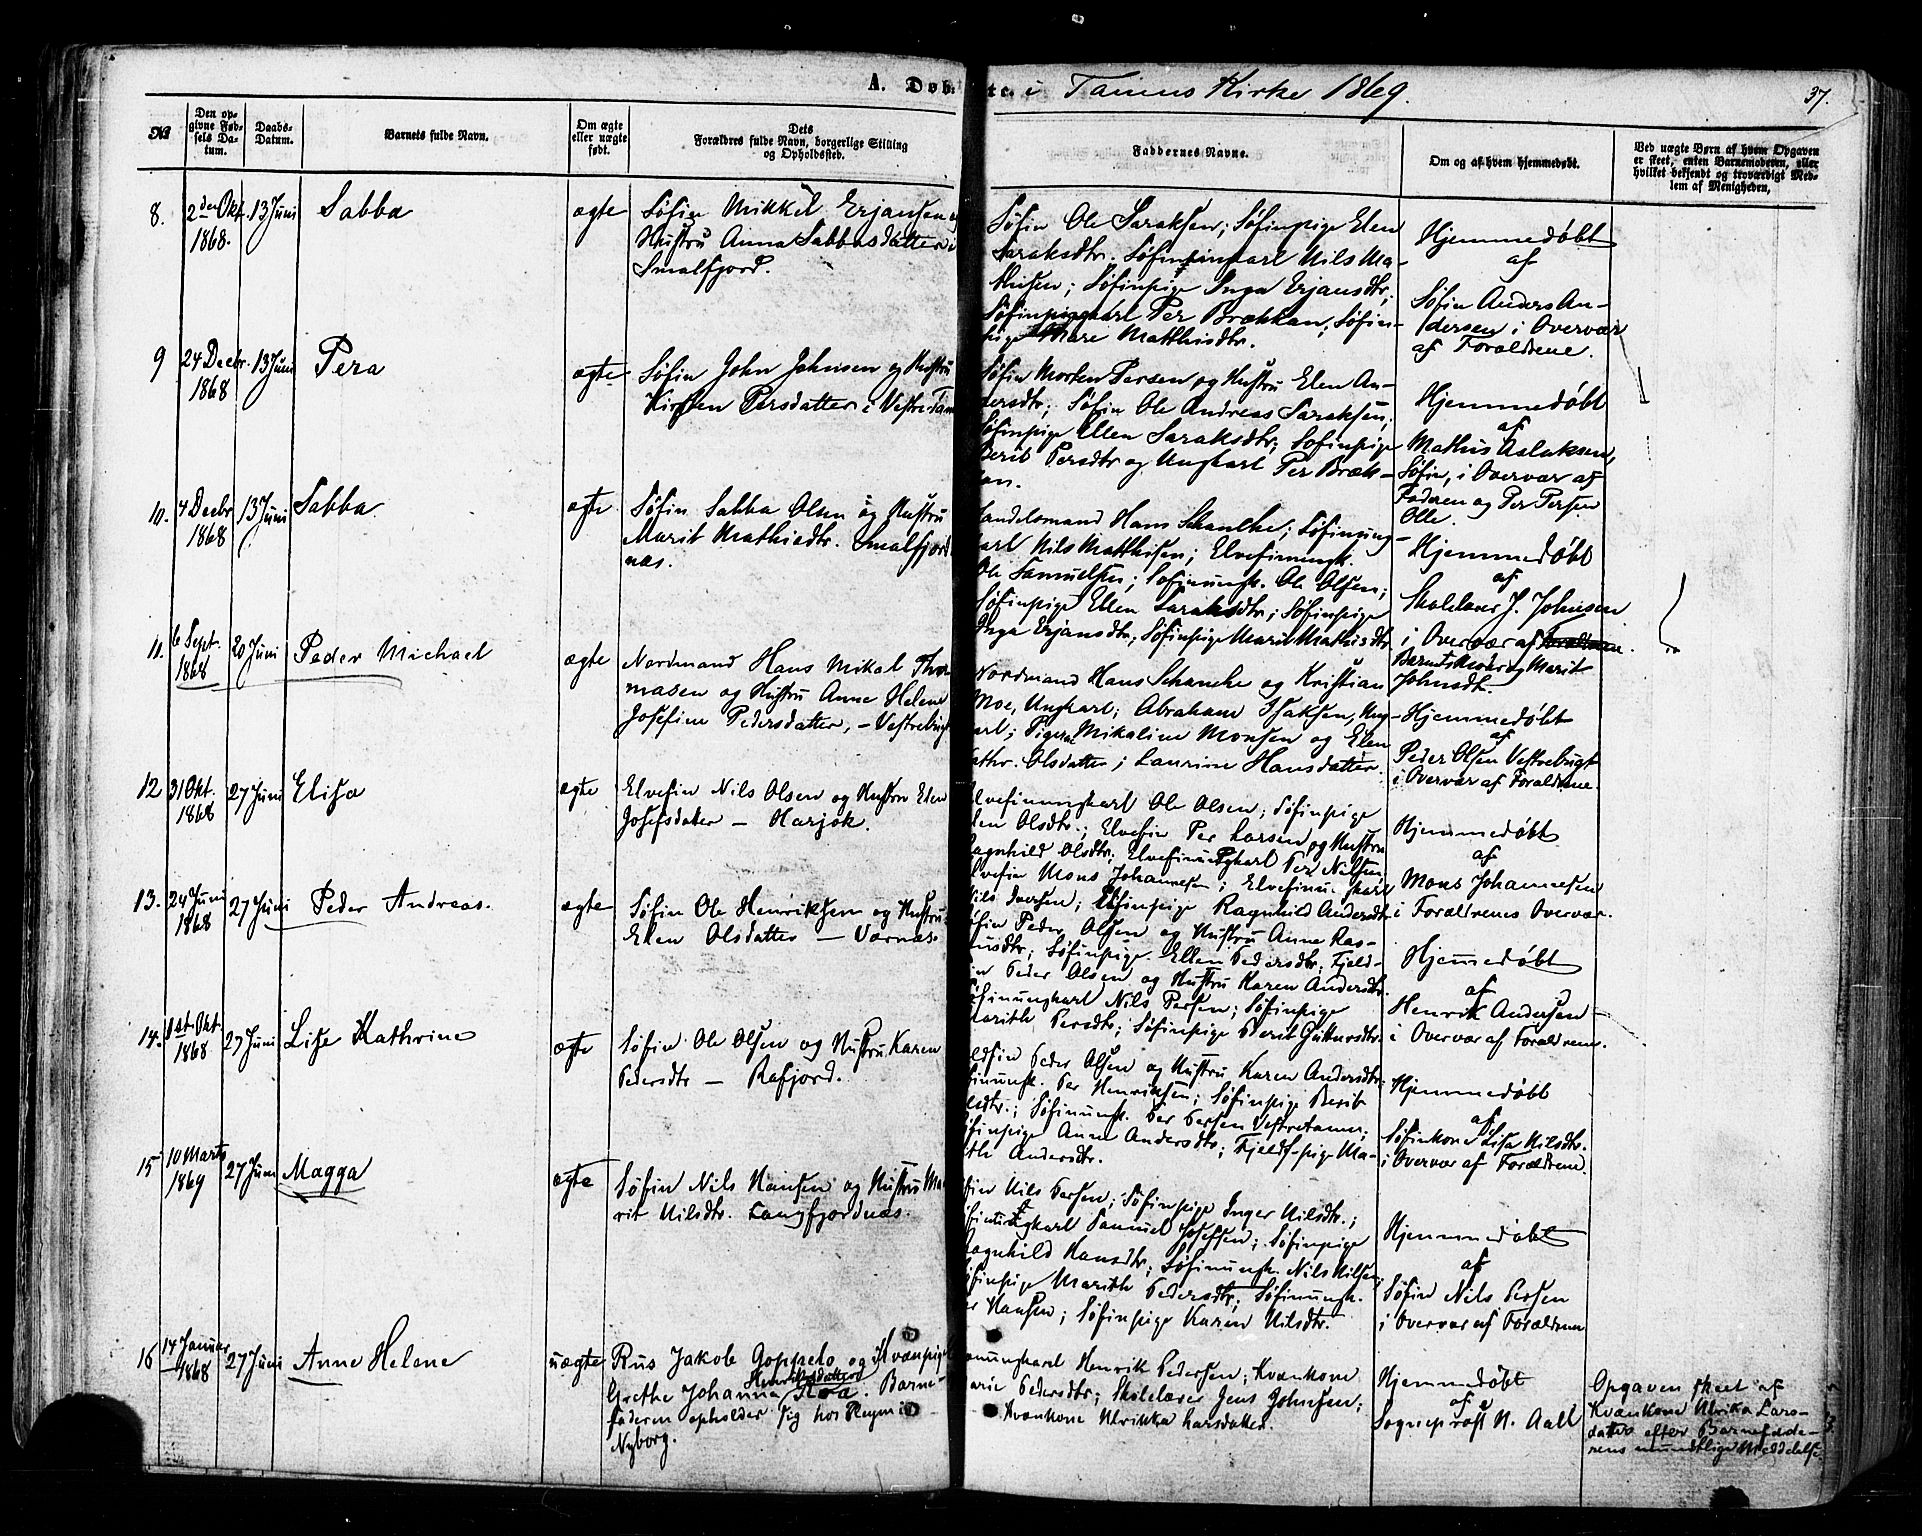 A. Døb- te. i Tanens Kirke 1869.
37.
No
Den op-
givne Fød-
sels Da-
tum.
Daabs-
Datum.
Barnets fulde Navn.
Om ægte
eller uægte
født.
Dets
Forældres fulde Navn, borgerlige Stilling
og Opholdssted.
Faddernes Navne.
Om og af hvem hjemmedøbt.
Ved uægte Børn af hvem Opgaven
er skeet, enten Barnemoderen, eller
hvilket bekjendt og troværdigt Med-
lem af Menigheden.
8.
2den Okt.
1868.
13 Juni
Sabba
ægte
Søfin Mikkel Erjansen og
Hustru Anna Sabbasdatter i
Smalfjord.
Søfin Ole Saraksen; Søfinpige Elen
Saraksdtr. Søfinunkarl Nils Ma-
thisen; Søfinpige Inga Erjansdtr;
Per Brækkan; Søfin-
pige Mare Matthisdtr.
Hjemmedøbt
af
Søfin Anders An-
dersen i Overvær
af Forældrene.
9
24 Decbr.
1868
13 Juni
Pera
ægte
Søfin John Johnsen og Hustru
Kirsten Persdatter i Vestre Tan
Søfin Morten Persen og Hustru Elen An-
dersdtr; Søfin Ole Andreas Saraksen;
Søfinpige Ellen Saraksdtr; Søfinpige
Berit Persdtr og Ungkarl Per Bræk-
an.
Hjemmedøbt
af
Mathis Aslaksen,
Søfin, i Overvær af
Faderen og Per Persen
Olle.
10.
4 Decbr
1868
13 Juni
Sabba
ægte
Søfin Sabba Olsen og Hustru
Marit Mathisdtr. Smalfjord
næs.
Handelsmand Hans Schancke; Søfinung-
karl Nils Matthisen; Elvefinungk.
Ole Samuelsen; Søfinungk. Ole Olsen;
Søfinpige Ellen Saraksdtr; Søfinpige
Inga Erjansdtr; Søfinpige Marit Mathisdtr
Hjemmedøbt
af
Skolelærer J. Johnsen
i Overvær af Forældrene.
Barnets Moder og Marit
Johnsdt.
11.
6 Sept.
1868
20 Juni
Peder Michael
ægte
Nordmand Hans Mikal Tho-
masen og Hustru Anne Helene
Josefine Pedersdatter, - Vestrebugt
Nordmand Hans Schancke og Kristian
Moe, Ungkarl; Abraham Isaksen, Ung-
karl; Pigerne Mikaline Monsen og Elen
Cathr. Olsdatter; Laurine Hansdatter.
Hjemmedøbt
af
Peder Olsen Vestrebugt
i Overvær af Forældrene.
12
31 Okt.
1868
27 Juni
Elisa
ægte
Elvefin Nils Olsen og Hustru Elen
Josefsdatter - Harjok.
Elvefinungkarl Ole Olsen; Søfinpige
Elen Olsdtr; Elvefin Per Larsen og Hustru
Ragnhild Olsdtr; Elvefinungkarl Per Nilsen
Elvefin Mons Johannesen; Elvefinungkarl
Nils Iversen; Elvefinpige Ragnhild Andersdtr
Hjemmedøbt
af
Mons Johannesen
i Forældrenes Overvær.
13.
24 Juni
1868
27 Juni
Peder Andreas.
ægte
Søfin Ole Henriksen og Hustru
Elen Olsdatter - Vornæs.
Søfin Peder Olsen og Hustru Anne Ras-
musdtr; Søfinpige Ellen Pedersdtr; Fjeld-
fin Peder Olsen og Hustru Karen Andersdtr.
Søfinungkarl Nils Persen; Søfinpige
Marith Persdtr; Søfinpige Berit Guttormsdtr.
Hjemmedøbt
af
Henrik Andersen
i Overvær af Forældrene.
14.
1st. Okt.
1868
27 Juni
Lise Kathrine
ægte
Søfin Ole Olsen og Hustru Karen
Pedersdtr - Rafjord.
Fjeldfin Peder Olsen og Hustru Karen Andersdtr;
Søfinungk. Per Henriksen; Søfinpige Berit
Olsdtr.; Søfinungk. Per Persen Vestretanen;
Søfinpige Anne Andersdtr; Fjeldf-pige Ma-
rith Andersdtr.
Hjemmedøbt
af
Søfinkone Lisa Nilsdtr.
i Overvær af Forældrene
15
10 Marts
1869
27 Juni
Magga
ægte
Søfin Nils Hansen og Hustru Ma-
rit Nilsdtr. Langfjordnæs.
Søfin Nils Persen; Søfinpige Inger Nilsdtr.;
Søfinungkarl Samuel Josefsen; Søfinpige
Ragnhild Hansdtr; Søfinungk. Nils Nilsen;
Søfinpige Marith Pedersdtr; Søfinungk.
Per Hansen; Søfinpige Karen Nilsdtr.
Hjemmedøbt
af
Søfin Nils Persen
i Overvær af Forældrene
16
14 Januar
1868
27 Juni
Anne Helene
uægte
Rus Jakob Goppelo og Kvænpige
Grethe Johanna Henriksdatter Roa. Barne-
faderen opholder sig hos
Nyborg.
Kvænungkarl Henrik Pedersen; Kvænkone
Marie Pedersdtr; Skolelærer Jens Johnsen;
Kvænkone Ulrikka Larsdatter.
Hjemmedøbt
af
Sogneprest N. Aall
Opgaven skeet af
Kvænkone Ulrika Lars-
datter efter Barnefade-
rens mundtlige Meddelelse